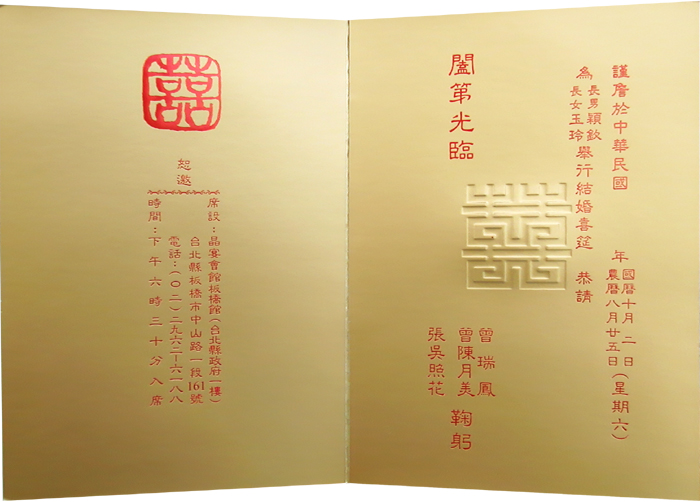 謹詹於中華民國 年 國曆十月二日
農曆八月廿五日(星期六)
為 長男穎欽
長女玉玲 舉行結婚喜筵 恭請
闔第光臨
囍
曾瑞鳳
曾陳月美 鞠躬
張吳照花
囍
恕邀
席設：晶宴會館板橋館(台北縣政府一樓)
台北縣板橋市中山路一段161號
電話：(○二)二九六二-六一八八
時間：下午六時三十分入席